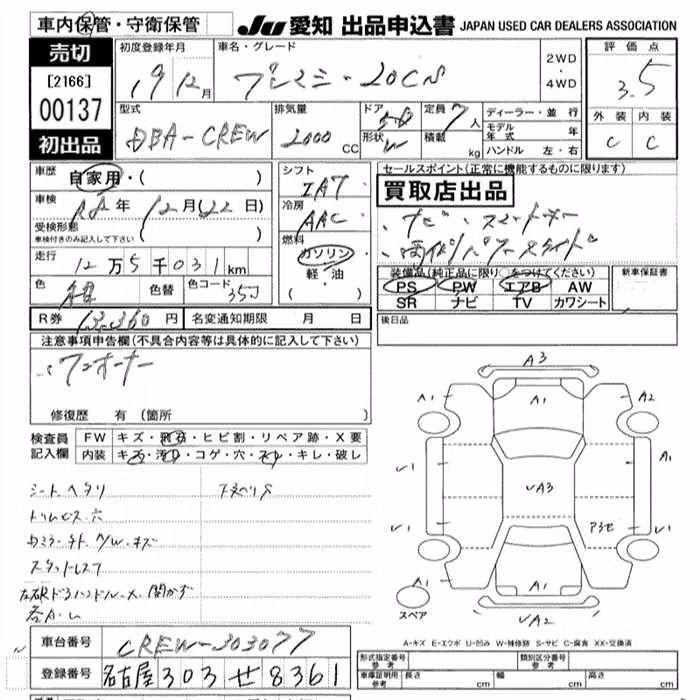 車内保管・守衛保管
JU 愛知 出品申込書 JAPAN USED CAR DEALERS ASSOCIATION
売切
[2166]
00137
初出品
初度登録年月
19 12月
車名・グレード
プレマシー・20CS
2WD
・
4WD
評価点
3.5
外装 内装
C C
型式
DBA-CREW
排気量
2000 CC
ドア
5D
形状
W
定員 7人
積載 kg
ディーラー・並行
モデル年式 年
ハンドル 左・右
車歴
自家用・( )
車検
年12月(22日)
受検形態
車検付きのみ記入して下さい ( )
走行
12万5千031km
色
色替
色コード 35J
R券 円
名変通知期限 月 日
シフト
IAT
冷房
AAC
燃料
ガソリン
・
軽・油
( )
セールスポイント(正常に機能するものに限ります)
買取店出品
・ナビ・スマートキー
・両側パワースライド
装備品(純正品に限り○をつけてください)
PS PW エアB AW
SR ナビ TV カワシート
新車保証書
後日品
注意事項申告欄(不具合内容等は具体的に記入して下さい)
・ワンオーナー
修復歴 有 (箇所 )
検査員記入欄
FW キズ・飛石・ヒビ割・リペア跡・X要
内装 キズ・汚れ・コゲ・穴・スレ・キレ・破レ
シートヘタリ
下廻りサ
トリムビス穴
スタットレス7
A3
A1 A1 A2
V1 A1
VA3
V1 P3セ V1
A1 A1 A1
VA2
スペア
A-キズ E-エクボ U-凹み W-補修跡 S-サビ C-腐食 XX-交換済
車台番号 CREW-303077
登録番号 名古屋 303 せ 8361
形式指定番号 参考
類別区分番号 参考
車庫証明用 参考 長さ cm 幅 cm 高さ cm